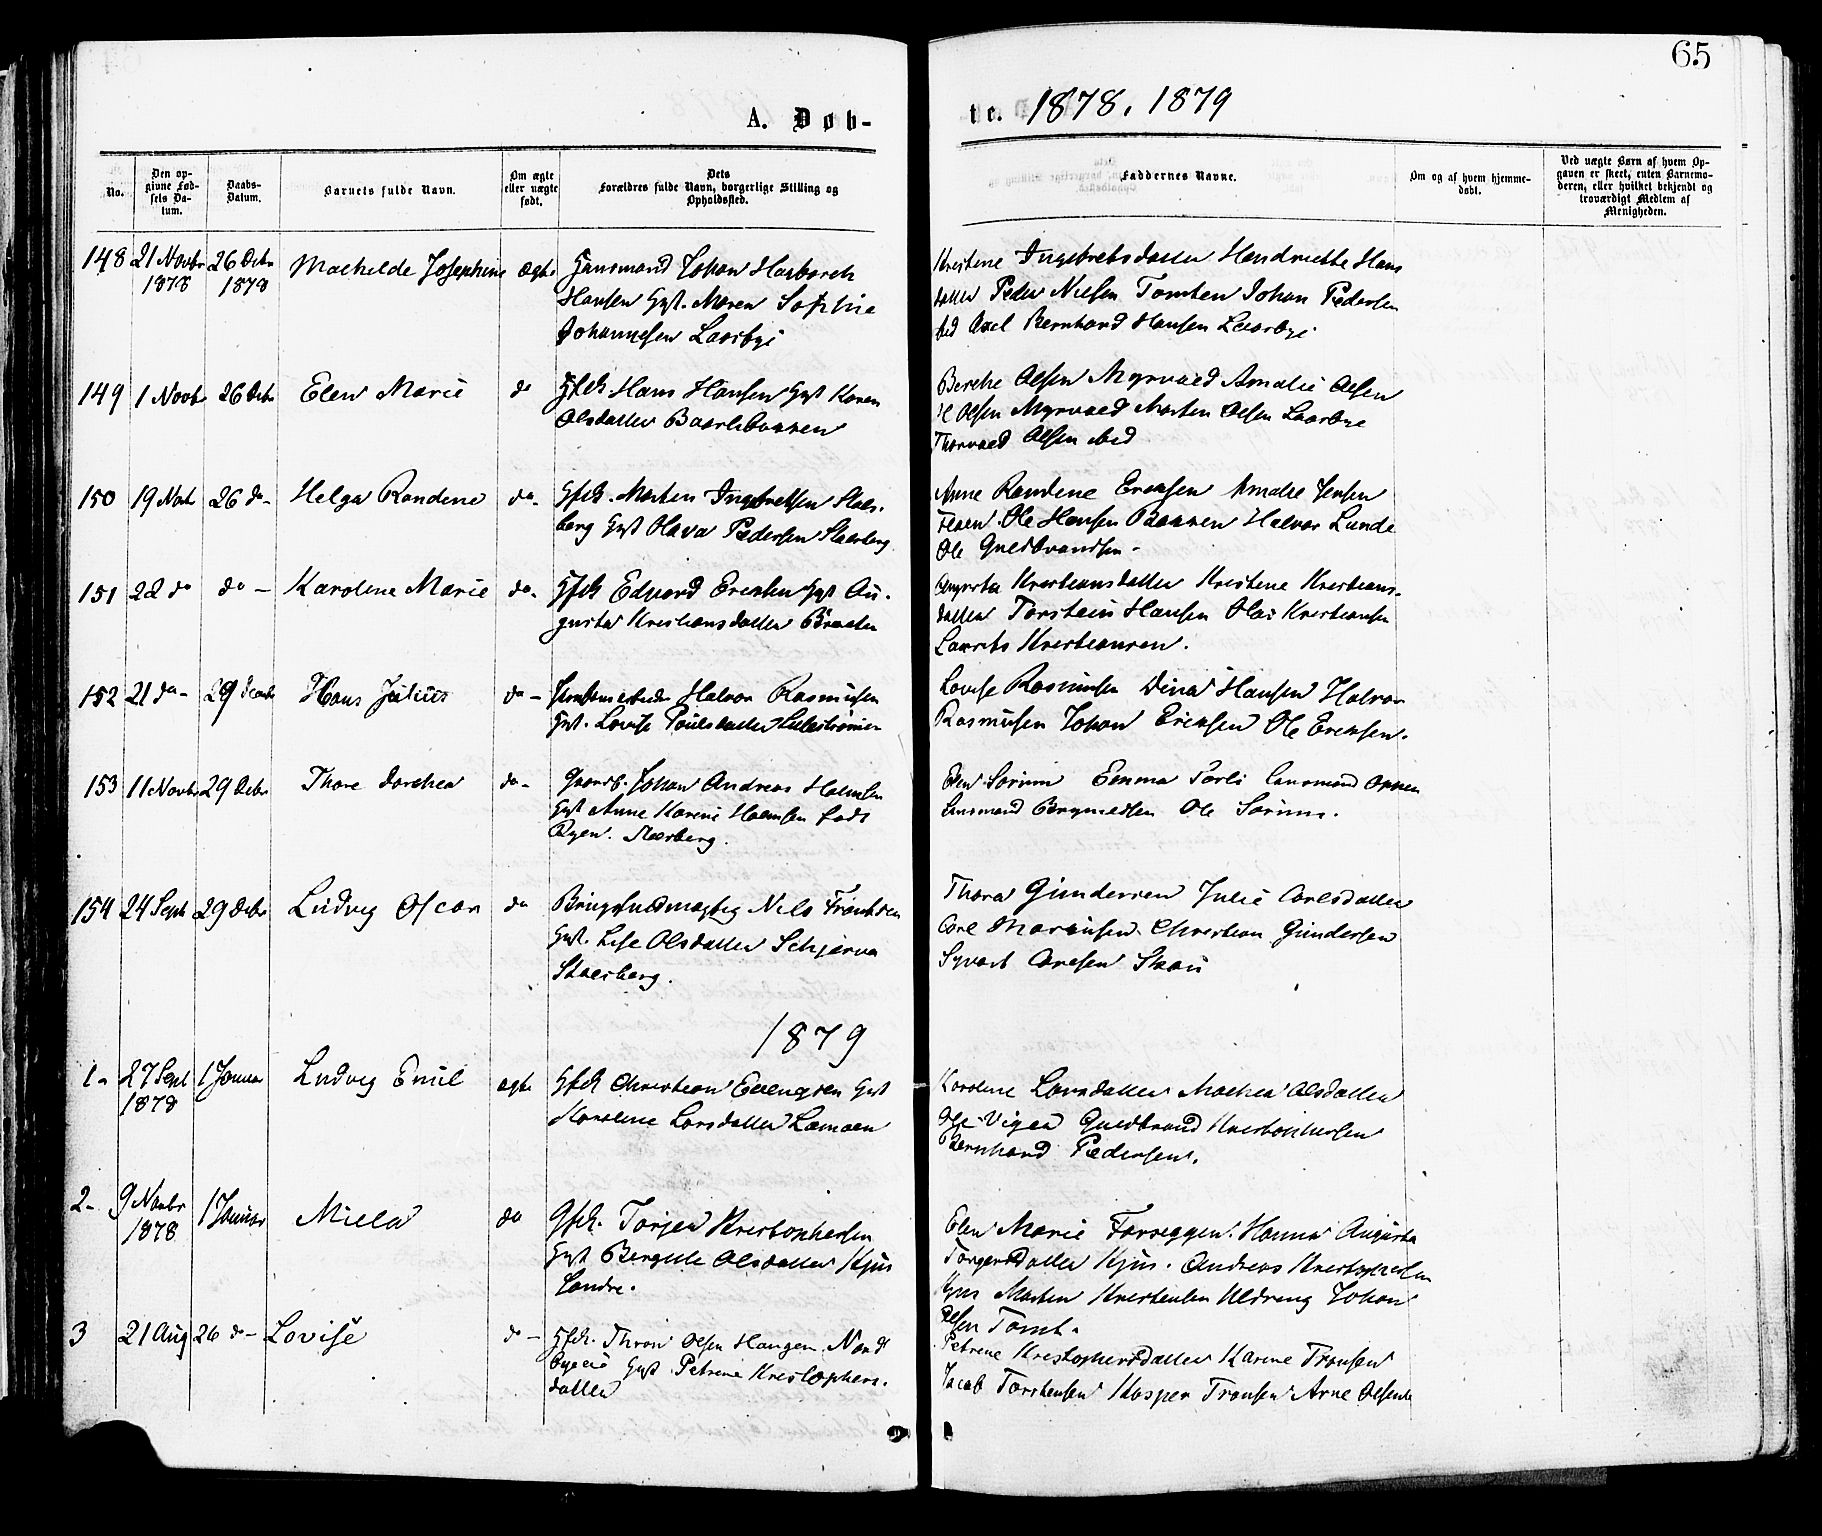 65
A. Døb-
te. 1878. 1879
No.
Den op-
givne Fød-
sels Da-
tum.
Daabs-
Datum.
Barnets fulde Navn.
Om ægte
eller uægte
født.
Dets
Forældres fulde Navn, borgerlige Stilling og
Opholdssted.
Faddernes Navne.
Om og af hvem hjemme-
døbt.
Ved uægte Børn af hvem Op-
gaven er skeet, enten Barnemo-
deren, eller hvilket bekjendt og
troværdigt Medlem af
Menigheden.
148 21 Novbr 1878 26 Debr 1878 Mathilde Josephine ægte
Johan
Hansen Gyst. Maren Sophie
Johannesen Laarbye
Kristine Ingebretsdatter Hendriette Hans
datter Peder Nielsen Tomten Johan Pedersen
ibd Axel Bernhard Hansen Laarbye
149 1 Novbr 26 Debr Elen Marie do
Gfch. Hans Hansen Gyst Karen
Olsdatter
Berthe Olsen Myrvold Amalie Olsen
Olsen Myrvold Morten Olsen Laarbye
Thorvald Olsen ibid
150 19 Novb 26 do- Helga Randine do-
Gfch. Morten Ingebretsen Staes-
berg Gyst Olava Pedersen Staesberg
Anne Randine Eriksen Amalie Jensen
Ole Hansen Bakken Halvor Lunde
Ole Guldbrandsen -
151 22 do do - Karoline Marie do-
Gfch Edvard Eriksen Gyst Au-
gusta Kristiansdatter Braaten
Augusta Kristiansdatter Kristine Kristians-
datter Torstein Hansen Olai Kristiansen
Laurits Kristiansen.
152 21 do- 29 Decbr Hans Julius do -
Halvor Rasmusen
Gyst. Lovise Poulsdatter Lillestrømmen
Lovise Rasmusen Dina Hansen Halvor
Rasmusen Johan Eriksen Ole Eriksen.
153 11 Novbr 29 Debr Thore Dorthea do-
Gaardb. Johan Andreas Holmsen
Gyst Anne Karine Holmsen født
Ryen.
Elen Sørum Emma
Ole Sørum.
154 24 Sept 29 Debr Ludvig Oscar do
Brugsfuldmægtig Nils Frantsen
Gyst. Lise Olsdatter Schjerva
Staesberg.
Thora Gundersen Julie Carlsdatter
Carl Mariusen Christian Gundersen
Syvert Carlsen Skou
1879
1- 27 Sept 1878 1 Januar Ludvig Emil ægte
Gfch Christian Evensen Gyst
Karoline Larsdatter Lomoen
Karoline Larsdatter Mathea Olsdatter
Guldbrand Kristophersen
Bernhard Pedersen.
2- 9 Novbr 1878 1 Januar Milla do
Gfch. Torjer Kristophersen
Gyst Bergitte Olsdatter Kjus
Søndre.
Elen Marie Farseggen. Hanna Augusta
Torgersdatter Kjus. Andreas Kristophersen
Kjus Morten Kristensen Uldreng Johan
Olsen Tomt.
3 21 Aug 26 do- Lovise do -
Gfch. Thron Olsen Haugen Nord
byeie Gyst Petrine Kristophers-
datter
Petrine Kristophersdatter Karine Tronsen
Jacob Torstensen Kasper Tronsen Arne Olsen